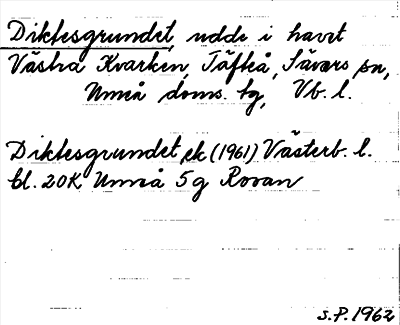 Diktesgrundet, udde i havet
Västra Kvarken, Täfteå, Sävars sn,
Umeå doms. tg, Vb. l.
Diktesgrundet ek (1961) Västerb. l.
bl. 20K Umeå 5g Rovan
S.P. 1962